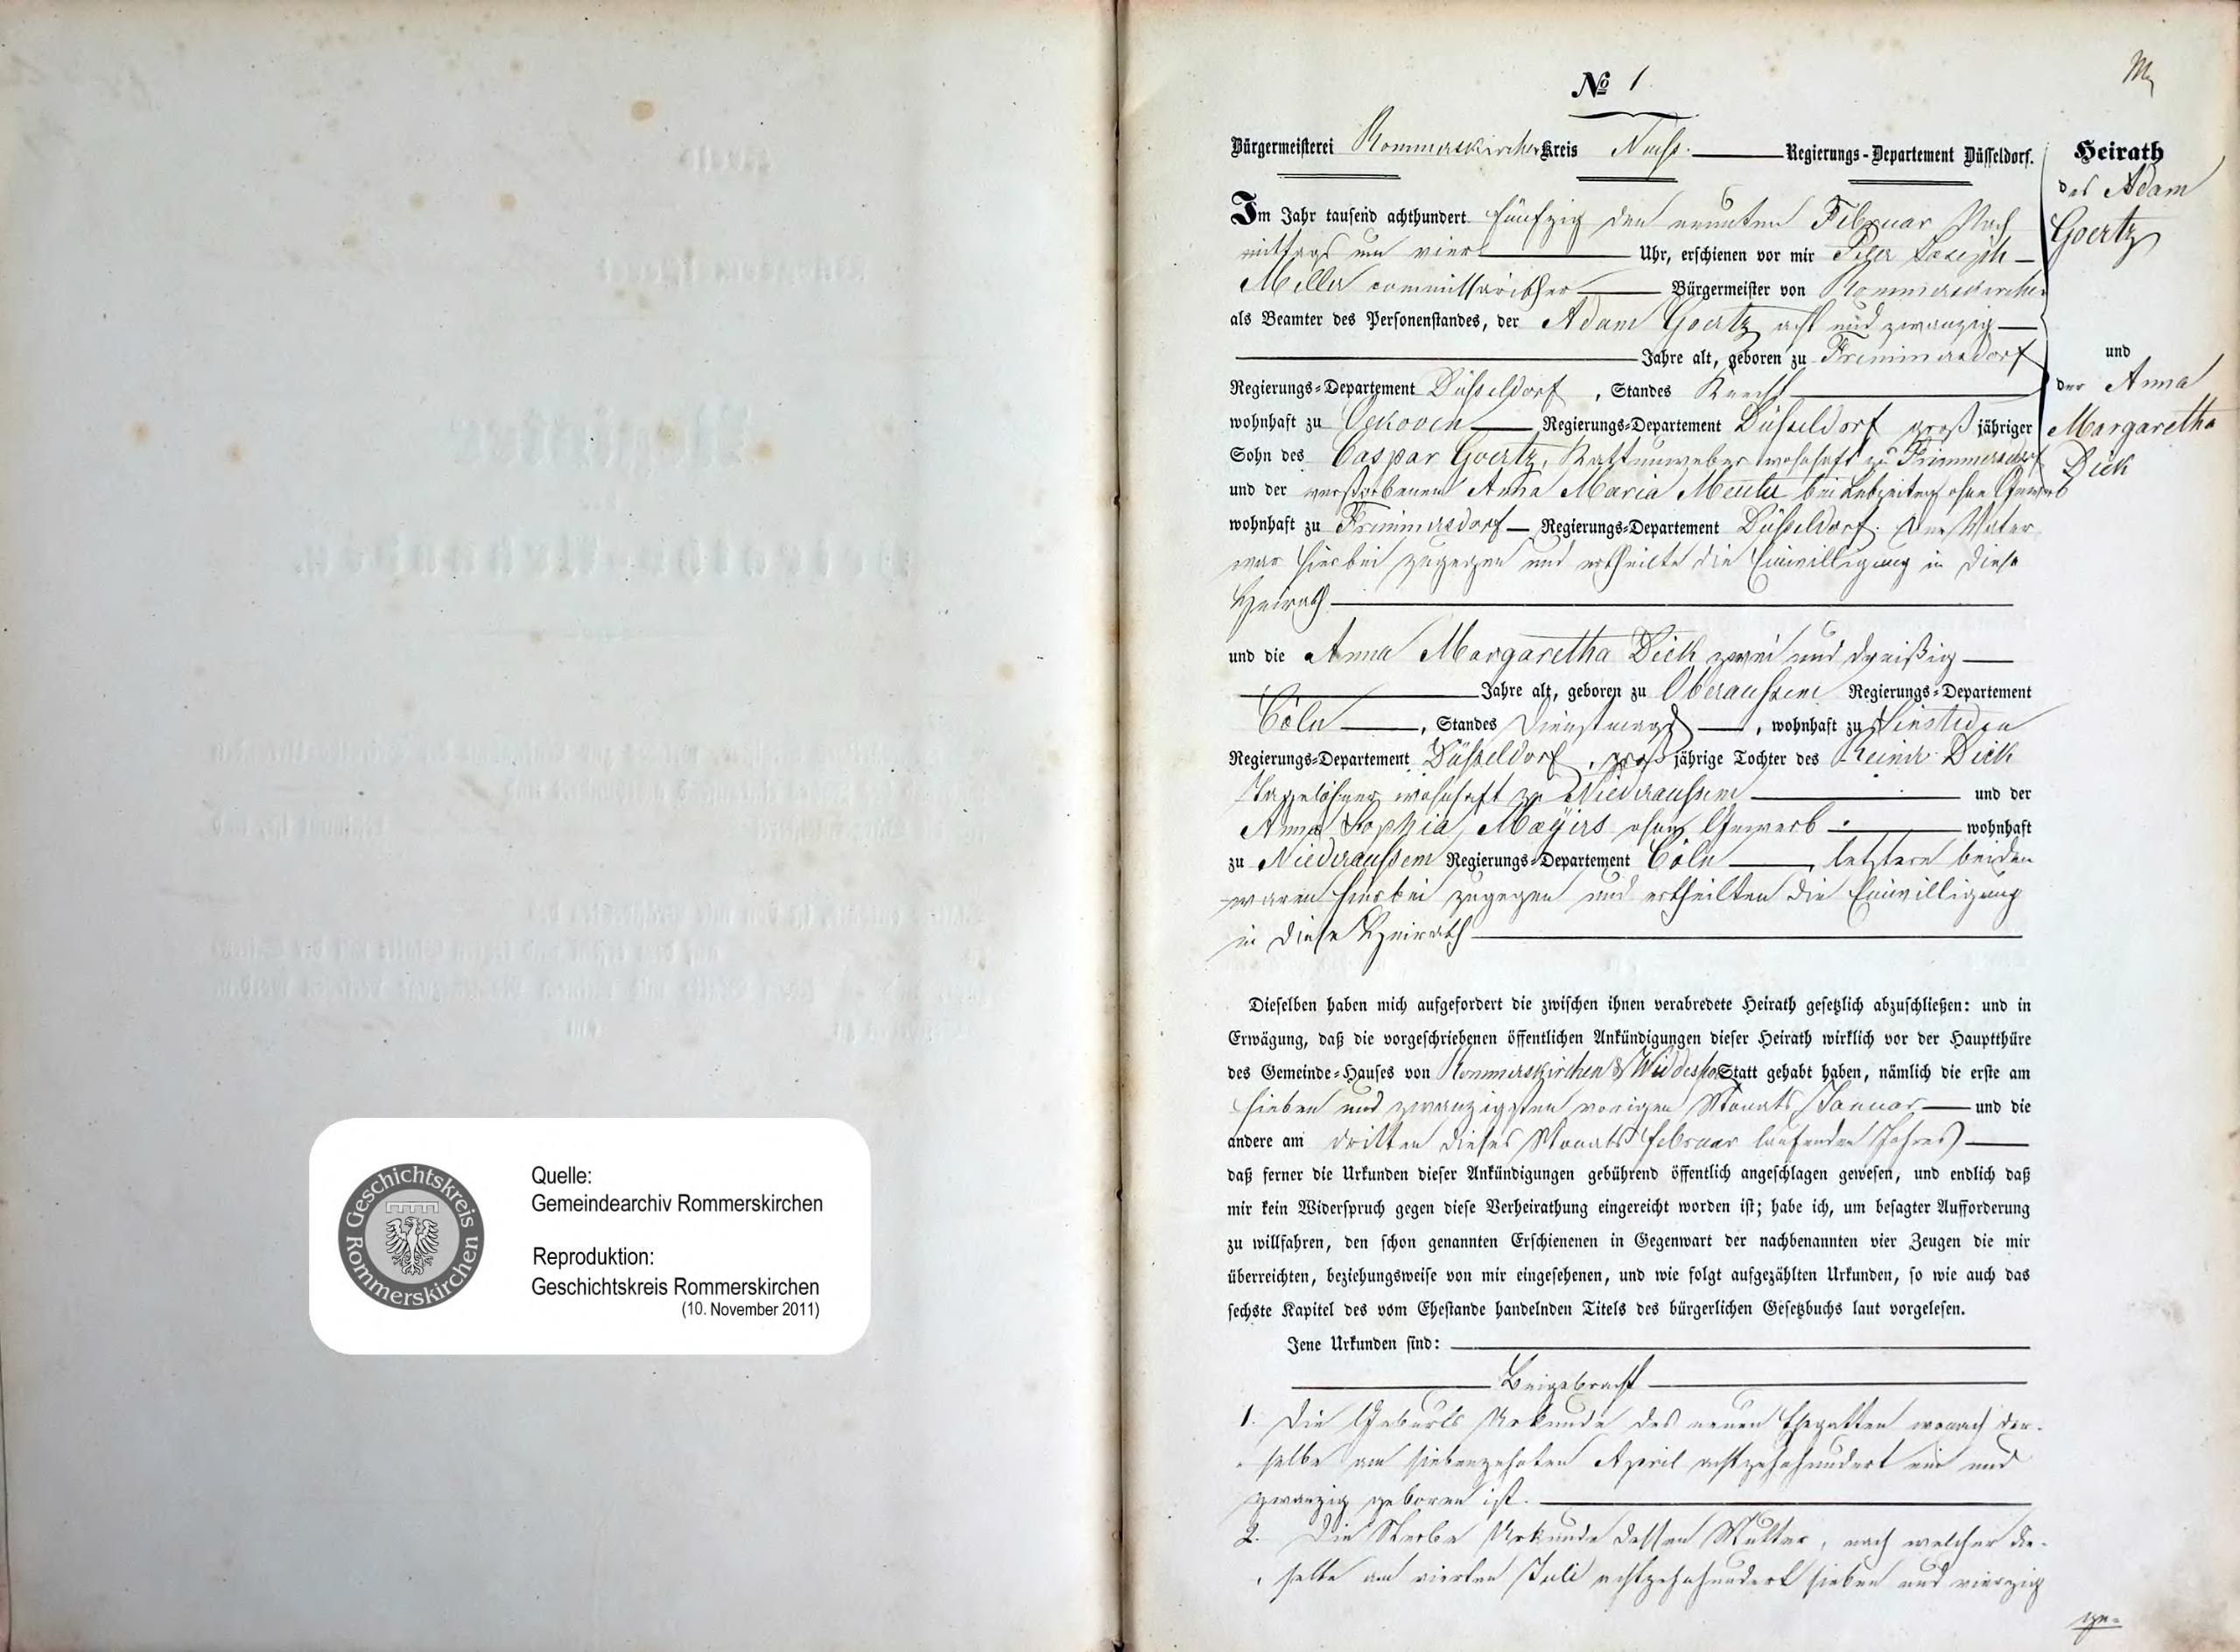 Geschichtskreis Rommerskirchen
Quelle:
Gemeindearchiv Rommerskirchen
Reproduktion:
Geschichtskreis Rommerskirchen
(10. November 2011)
№ 1
Bürgermeisterei Rommerskirchen Kreis Neuß. Regierungs-Departement Düsseldorf.
Im Jahr tausend achthundert fünfzig den neunten Februar Nach
mittags um vier Uhr, erschienen vor mir Peter Joseph
Miller commissarischer Bürgermeister von Rommerskirchen
als Beamter des Personenstandes, der Adam Goertz acht und zwanzig
Jahre alt, geboren zu Frimmersdorf
Regierungs-Departement Düsseldorf, Standes Knecht
wohnhaft zu Oekoven Regierungs-Departement Düsseldorf groß jähriger
Sohn des Caspar Goertz, Kattunweber wohnhaft zu Frimmersdorf
und der verstorbenen Anna Maria bei Lebzeiten ohne Gewerb
wohnhaft zu Frimmersdorf Regierungs-Departement Düsseldorf. Der Vater
war hierbei zugegen und ertheilte die Einwilligung in diese
Heirath
und die Anna Margaretha Dick zwei und dreißig
Jahre alt, geboren zu Oberaußem Regierungs-Departement
Cöln, Standes Dienstmagd, wohnhaft zu Sinsteden
Regierungs-Departement Düsseldorf, groß jährige Tochter des Reiner Dick
Tagelöhner wohnhaft zu Niederaußem und der
Anna Sophia ohne Gewerb wohnhaft
zu Niederaußem Regierungs-Departement Cöln, letztere beiden
waren hierbei zugegen und ertheilten die Einwilligung
in diese Heirath
Dieselben haben mich aufgefordert die zwischen ihnen verabredete Heirath gesetzlich abzuschließen: und in
Erwägung, daß die vorgeschriebenen öffentlichen Ankündigungen dieser Heirath wirklich vor der Hauptthüre
des Gemeinde-Hauses von Rommerskirchen & Statt gehabt haben, nämlich die erste am
sieben und zwanzigsten vorigen Monats Januar und die
andere am dritten dieses Monats Februar laufenden Jahres
daß ferner die Urkunden dieser Ankündigungen gebührend öffentlich angeschlagen gewesen, und endlich daß
mir kein Widerspruch gegen diese Verheirathung eingereicht worden ist; habe ich, um besagter Aufforderung
zu willfahren, den schon genannten Erschienenen in Gegenwart der nachbenannten vier Zeugen die mir
überreichten, beziehungsweise von mir eingesehenen, und wie folgt aufgezählten Urkunden, so wie auch das
sechste Kapitel des vom Ehestande handelnden Titels des bürgerlichen Gesetzbuchs laut vorgelesen.
Jene Urkunden sind:
Beigebracht
1. Die Geburts Urkunde des neuen Ehegatten wonach der-
selbe am siebenzehnten April achtzehnhundert ein und
zwanzig geboren ist.
2. Die Sterbe Urkunde dessen Mutter, nach welcher die-
selbe am vierten Juli achtzehnhundert sieben und vierzig
ge-
Heirath
des Adam
Goertz
und
der Anna
Margaretha
Dick